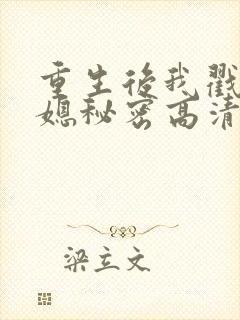 重生后我戳
媳秘密高清
梁立文